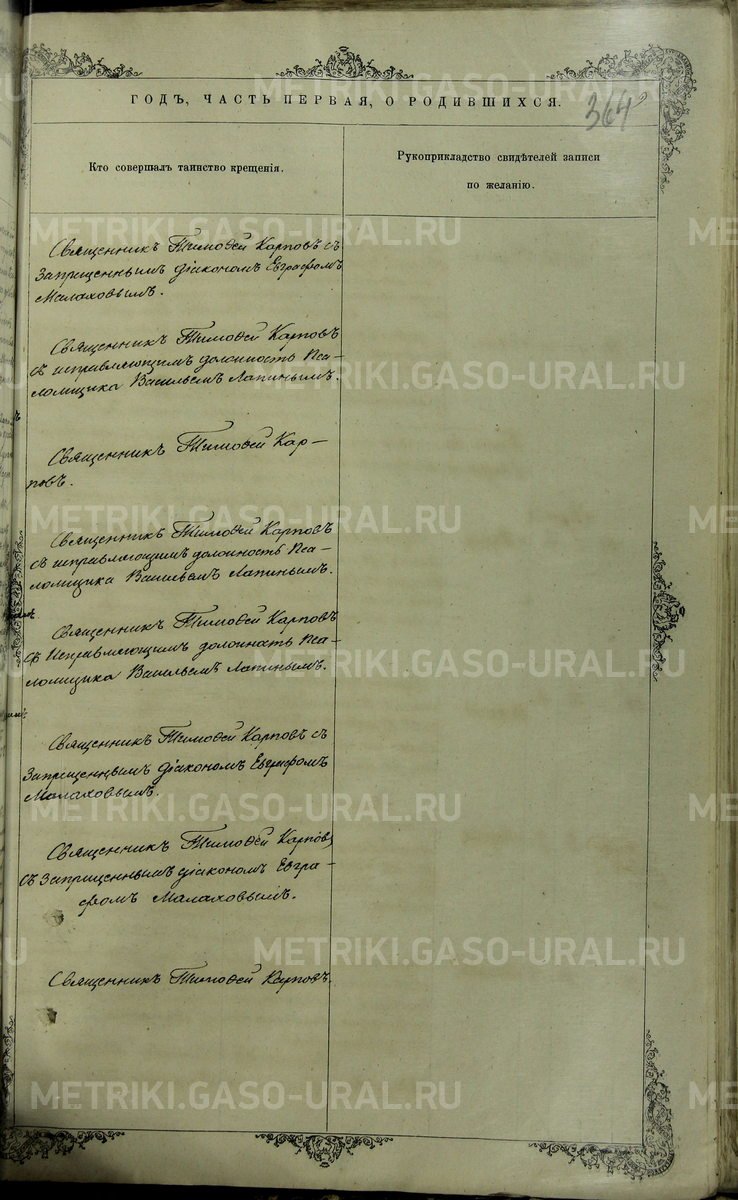 ГОДЪ, ЧАСТЬ ПЕРВАЯ, О РОДИВШИХСЯ.
364
Кто совершалъ таинство крещенія.
Рукоприкладство свидѣтелей записи
по желанію.
Священникъ Тимоѳей Карповъ съ
Запрещеннымъ діакономъ Евграфомъ
Малаховымъ.
Священникъ Тимоѳей Карповъ
съ исправляющимъ должность Пса-
ломщика Васильемъ Лапинымъ.
Священникъ Тимоѳей Кар-
повъ.
Священникъ Тимоѳей Карповъ
съ исправляющимъ должность Пса-
ломщика Васильемъ Лапинымъ.
Священникъ Тимоѳей Карповъ
съ Исправляющимъ должность Пса-
ломщика Васильемъ Лапинымъ.
Священникъ Тимоѳей Карповъ съ
Запрещеннымъ діакономъ Евграфомъ
Малаховымъ.
Священникъ Тимоѳей Карповъ
съ Запрещеннымъ діакономъ Евгра-
фомъ Малаховымъ.
Священникъ Тимоѳей Карповъ.
METRIKI.GASO-URAL.RU
METRIKI.GASO-URAL.RU
METRIKI.GASO-URAL.RU
METRIKI.GASO-URAL.RU
METRIKI.GASO-URAL.RU
METRIKI.GASO-URAL.RU
METRIKI.GASO-URAL.RU
METRIKI.GASO-URAL.RU